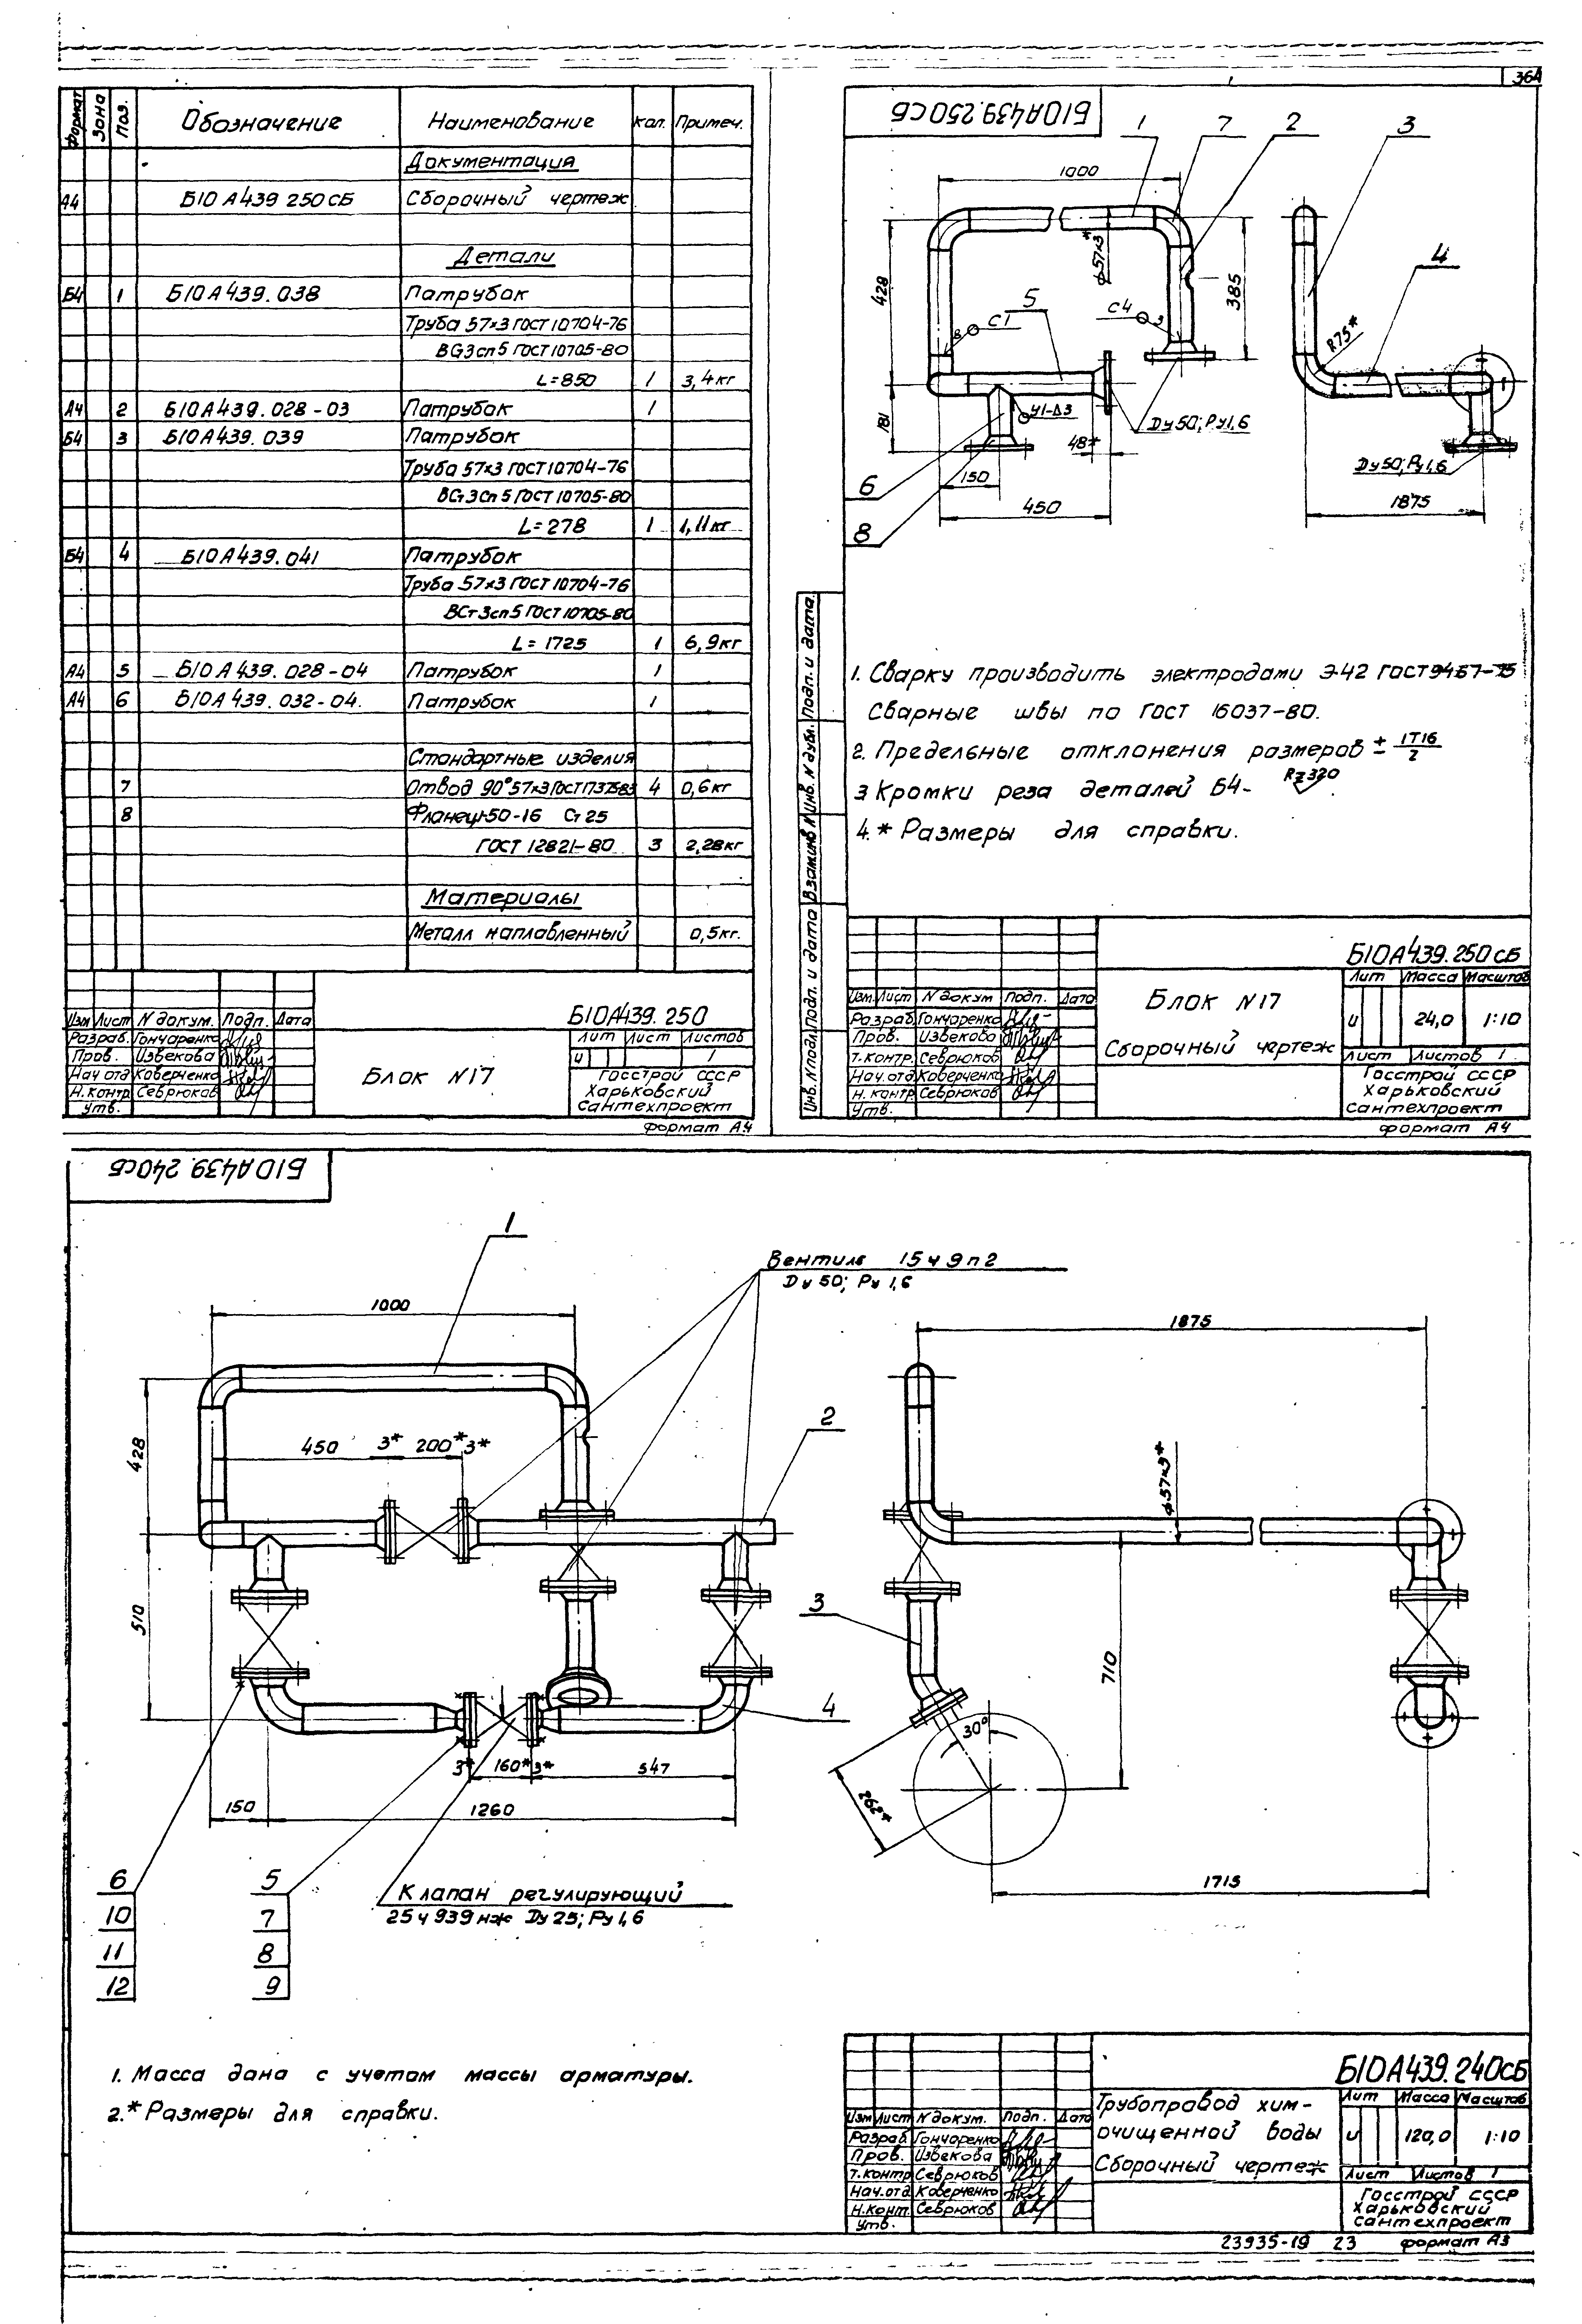 36А
Формат Зона Поз. Обозначение Наименование Кол. Примеч.
Документация
А4 Б10А439 250сБ Сборочный чертеж
Детали
Б4 1 Б10А439.038 Патрубок
Труба 57×3 ГОСТ 10704-76
ВСт3сп5 ГОСТ 10705-80
L=850 1 3,4кг
А4 2 Б10А439.028-03 Патрубок 1
Б4 3 Б10А439.039 Патрубок
Труба 57×3 ГОСТ 10704-76
ВСт3сп5 ГОСТ 10705-80
L=278 1 1,11кг
Б4 4 Б10А439.041 Патрубок
Труба 57×3 ГОСТ 10704-76
ВСт3сп5 ГОСТ 10705-80
L=1725 1 6,9кг
А4 5 Б10А439.028-04 Патрубок 1
А4 6 Б10А439.032-04. Патрубок 1
Стандартные изделия
7 Отвод 90° 57×3 ГОСТ 17375-83 4 0,6кг
8 Фланец 1-50-16 Ст25
ГОСТ 12821-80 3 2,28кг
Материалы
Металл наплавленный 0,5кг.
Б10А439.250
Изм Лист N докум. Подп. Дата
Разраб. Гончаренко
Пров. Извекова
Нач отд Коверченко
Н.контр Севрюков
Утв.
Блок N17
Лит Лист Листов
и 1
Госстрой СССР
Харьковский
Сантехпроект
формат А4
Б10А439.250СБ
1 7 2 3
1000
428
181
ф57×3*
385
4
5
С1
С4
3
R75*
У1-Δ3
Dу50; Ру1,6
48*
150
450
6
8
Dу50; Ру1,6
1875
1. Сварку производить электродами Э-42 ГОСТ 9467-75
Сварные швы по ГОСТ 16037-80.
2. Предельные отклонения размеров ± IT16/2
3 Кромки реза деталей Б4- Rz320
4.* Размеры для справки.
Инв. N подл. Подп. и дата Взам.инв N Инв. N дубл. Подп. и дата.
Б10А439.250сБ
Изм. Лист N докум Подп. Дата
Разраб. Гончаренко
Пров. Извекова
т.контр. Севрюков
Нач.отд. Коверченко
Н. контр. Севрюков
Утв.
Блок N17
Сборочный чертеж
Лит Масса Масштаб
и 24,0 1:10
Лист Листов 1
Госстрой СССР
Харьковский
Сантехпроект
формат А4
Б10А439.240сБ
1
Вентиль 15ч9п2
Dу50; Ру1,6
1000
1875
2
428
450 3* 200* 3*
ф57×3*
510
3
710
4
30°
262*
3* 160* 3* 547
150 1260
1713
6
10
11
12
5
7
8
9
Клапан регулирующий
25ч939нж Dу25; Ру1,6
1. Масса дана с учетом массы арматуры.
2.* Размеры для справки.
Б10А439.240сБ
Изм Лист N докум. Подп. Дата
Разраб Гончаренко
Пров. Извекова
т.контр Севрюков
Нач.отд Коверченко
Н.конт. Севрюков
Утв.
Трубопровод хим-
очищенной воды
Сборочный чертеж
Лит Масса Масштаб
и 120,0 1:10
Лист Листов 1
Госстрой СССР
Харьковский
Сантехпроект
23935-19 23 формат А3